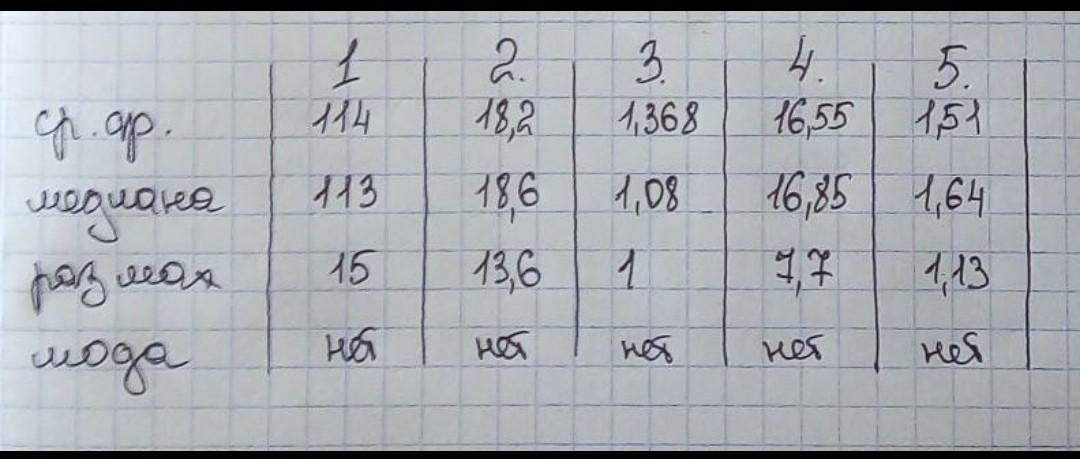 1 2. 3. 4. 5.
ср. ар. 114 18,2 1,368 16,55 1,51
медиана 113 18,6 1,08 16,85 1,64
размах 15 13,6 1 7,7 1,13
мода нет нет нет нет нет